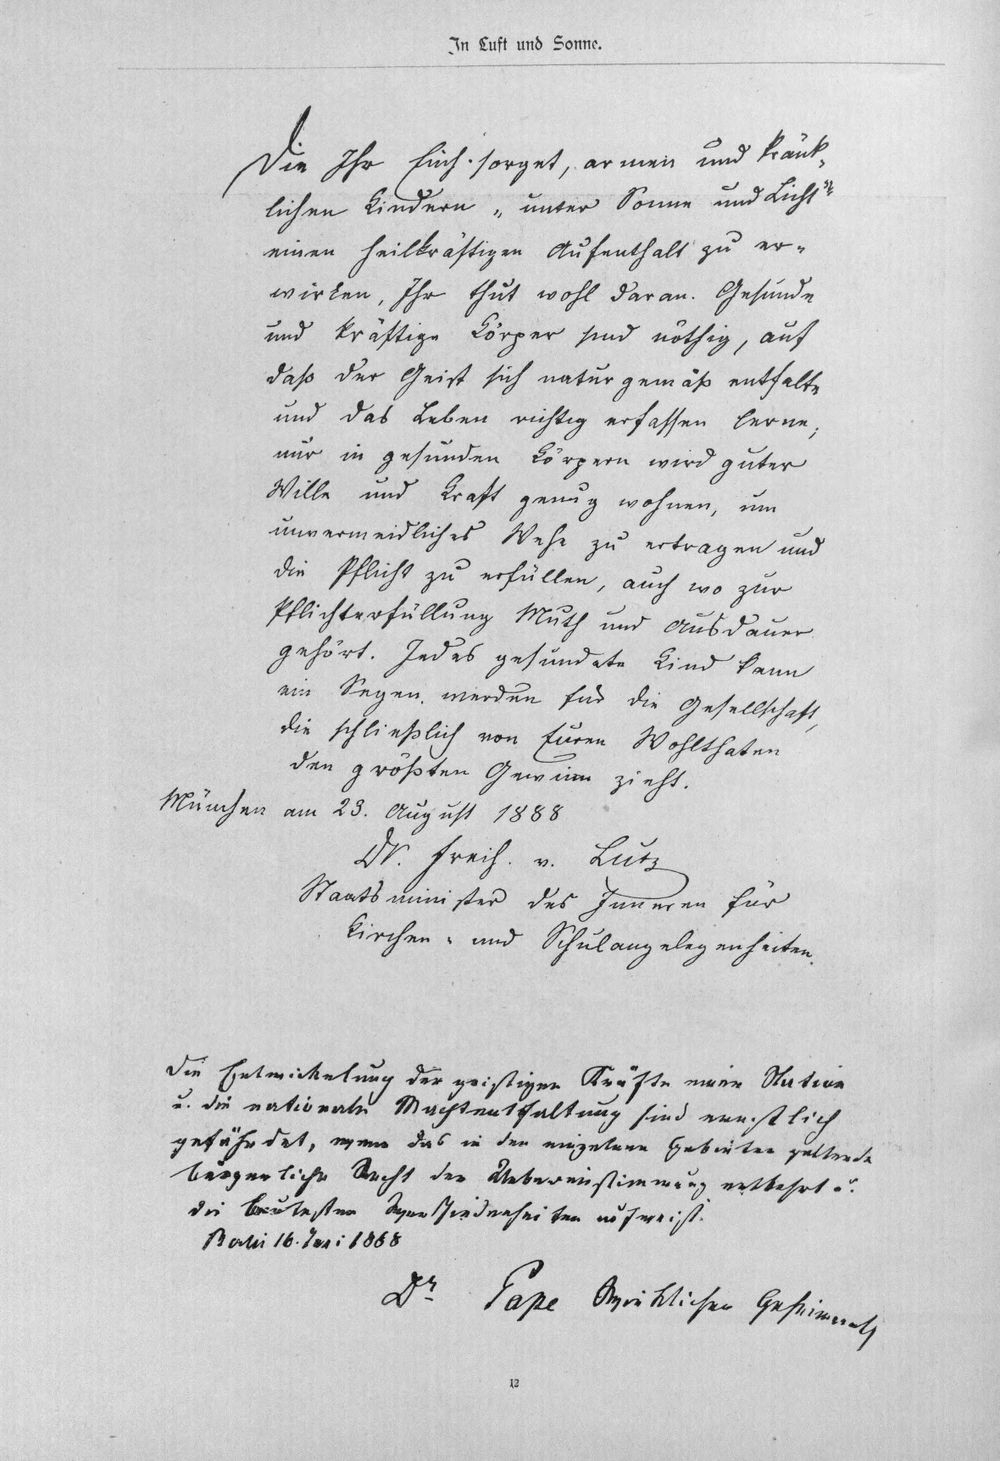 In Luft und Sonne.
Die Ihr Euch sorget, armen und kränk-
lichen Kindern „unter Sonne und Licht“
einen heilkräftigen Aufenthalt zu er-
wirken, Ihr thut wohl daran. Gesunde
und kräftige Körper sind nöthig, auf
daß der Geist sich naturgemäß entfalte
und das Leben richtig erfassen lerne;
nur in gesunden Körpern wird guter
Wille und Kraft genug wohnen, um
unvermeidliches Wehe zu ertragen und
die Pflicht zu erfüllen, auch wo zur
Pflichterfüllung Muth und Ausdauer
gehört. Jedes gesundete Kind kann
ein Segen werden für die Gesellschaft,
die schließlich von Euren Wohlthaten
den größten Gewinn zieht.
München am 23. August 1888
Dr. Freih. v. Lutz
Staatsminister des Inneren für
Kirchen- und Schulangelegenheiten.
Die Entwickelung der geistigen Kräfte einer Nation
u. die nationale Machtentfaltung sind ernstlich
gefährdet, wenn das in den einzelnen Gebieten geltende
bürgerliche Recht der Uebereinstimmung entbehrt u.
die Verschiedenheiten aufweist.
16. 1888
Dr. Pape Wirklicher Geheimrath
12